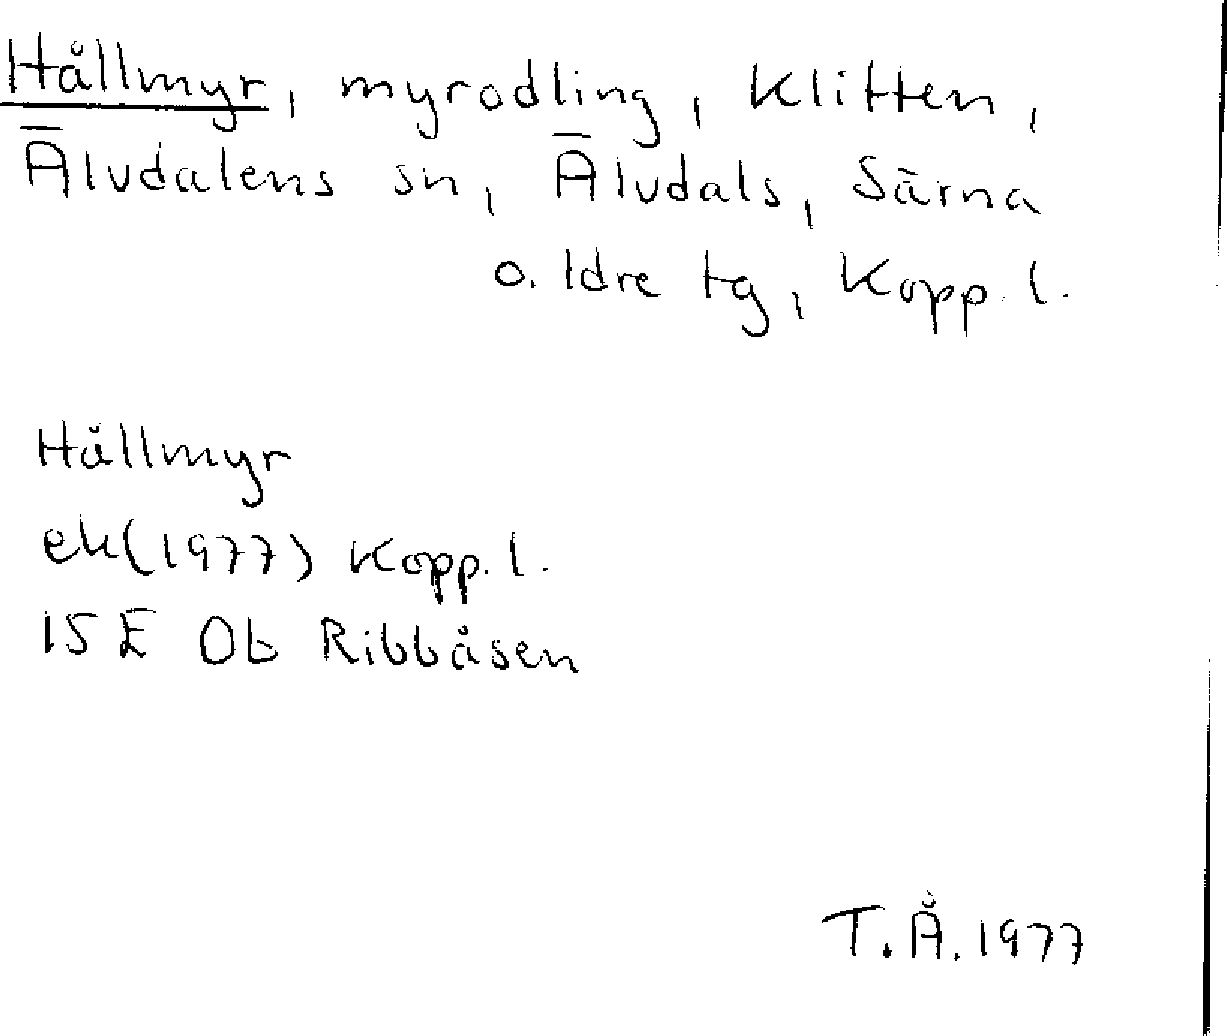 Hållmyr, myrodling, Klitten,
Älvdalens sn, Älvdals, Särna
o. Idre tg, Kopp. l.
Hållmyr
ek (1977) Kopp. l.
15 E 0b Ribbåsen
T. Å. 1977